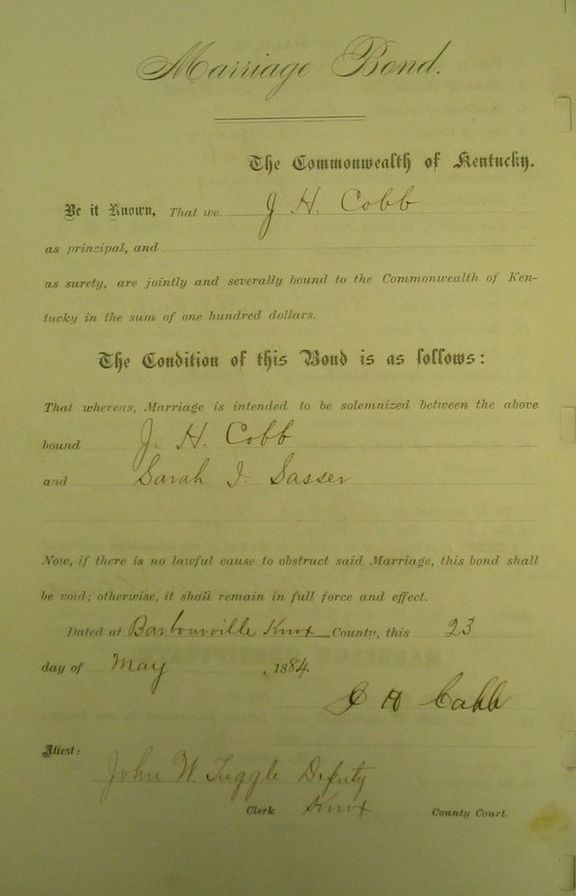 Marriage Bond.
The Commonwealth of Kentucky.
Be it Known, That we J H. Cobb
as principal, and
as surety, are jointly and severally bound to the Commonwealth of Ken-
tucky in the sum of one hundred dollars.
The Condition of this Bond is as follows:
That whereas, Marriage is intended to be solemnized between the above
bound J. H. Cobb
and Sarah I. Sasser
Now, if there is no lawful cause to obstruct said Marriage, this bond shall
be void; otherwise, it shall remain in full force and effect.
Dated at Barbourville Knox County, this 23
day of May , 1884.
J H Cobb
Attest:
John W. Tuggle Deputy
Clerk Knox County Court.